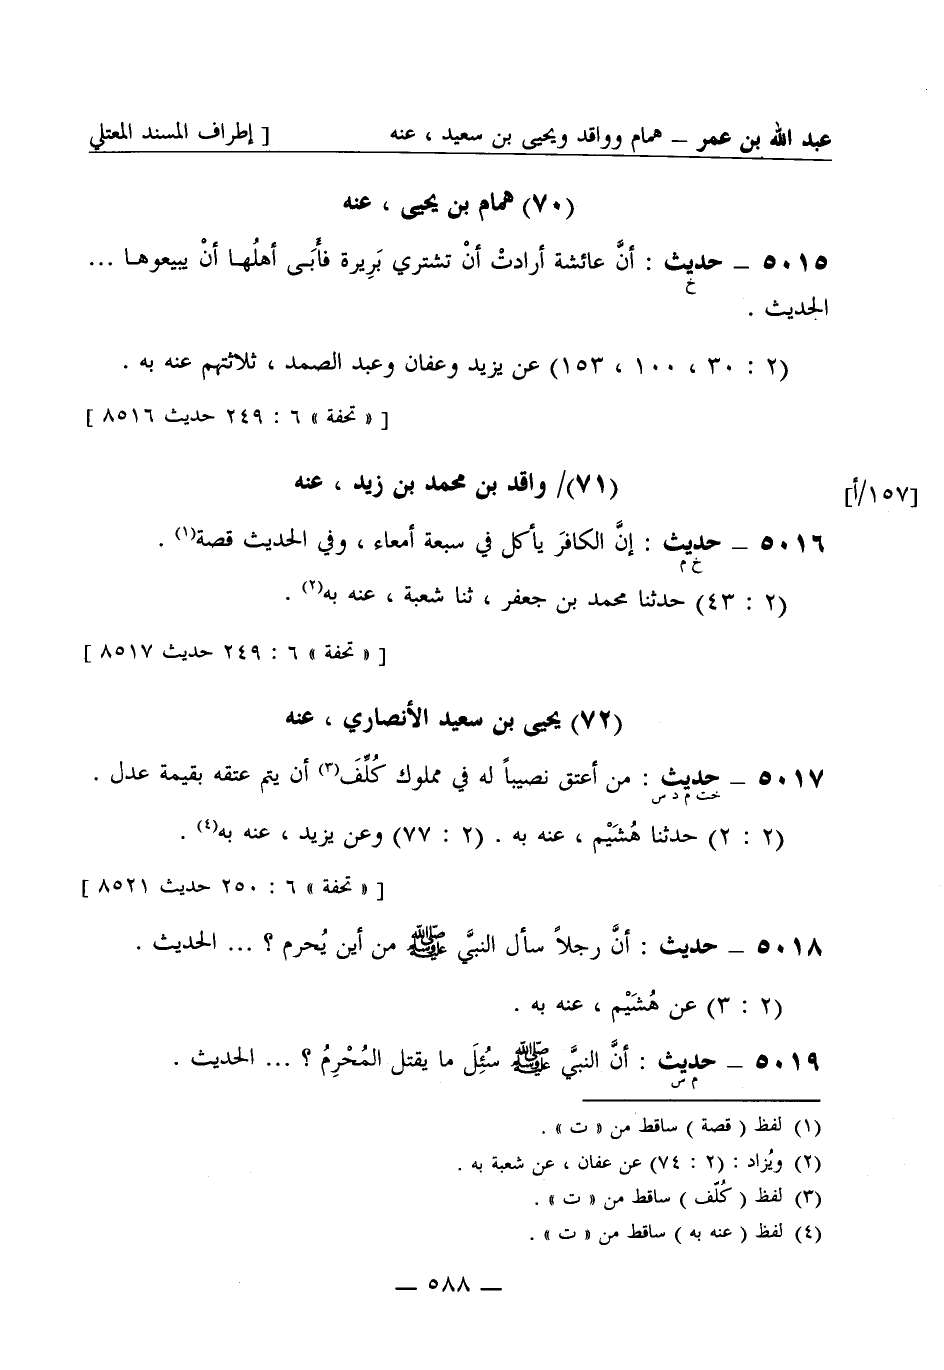 عبد الله بن عمر – همام وواقد ويحيى بن سعيد ، عنه [ إطراف المسند المعتلي
(٧٠) همام بن يحيى ، عنه
٥٠١٥ – حديث : أنَّ عائشة أرادتْ أنْ تشتري بَرِيرة فأَبَى أهلُها أنْ يبيعوها ...
خ
الحديث .
(٢ : ٣٠ ، ١٠٠ ، ١٥٣) عن يزيد وعفان وعبد الصمد ، ثلاثتهم عنه به .
[ « تحفة » ٦ : ٢٤٩ حديث ٨٥١٦ ]
(٧١)/ واقد بن محمد بن زيد ، عنه
[١٥٧/أ]
٥٠١٦ – حديث : إنَّ الكافرَ يأكل في سبعة أمعاء ، وفي الحديث قصة(١) .
خ م
(٢ : ٤٣) حدثنا محمد بن جعفر ، ثنا شعبة ، عنه به(٢) .
[ « تحفة » ٦ : ٢٤٩ حديث ٨٥١٧ ]
(٧٢) يحيى بن سعيد الأنصاري ، عنه
٥٠١٧ – حديث : من أعتق نصيباً له في مملوك كُلِّفَ(٣) أن يتم عتقه بقيمة عدل .
خت م د س
(٢ : ٢) حدثنا هُشَيْم ، عنه به . (٢ : ٧٧) وعن يزيد ، عنه به(٤) .
[ « تحفة » ٦ : ٢٥٠ حديث ٨٥٢١ ]
٥٠١٨ – حديث : أنَّ رجلاً سأل النبيَّ ﷺ من أين يُحرم ؟ ... الحديث .
(٢ : ٣) عن هُشَيْم ، عنه به .
٥٠١٩ – حديث : أنَّ النبيَّ ﷺ سُئِلَ ما يقتل المُحْرِمُ ؟ ... الحديث .
م س
(١) لفظ ( قصة ) ساقط من « ت » .
(٢) ويُزاد : (٢ : ٧٤) عن عفان ، عن شعبة به .
(٣) لفظ ( كُلّف ) ساقط من « ت » .
(٤) لفظ ( عنه به ) ساقط من « ت » .
– ٥٨٨ –